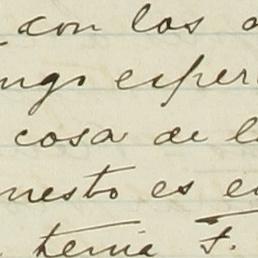 con los
ngo esper
cosa de l
nesto es e
tenia F.